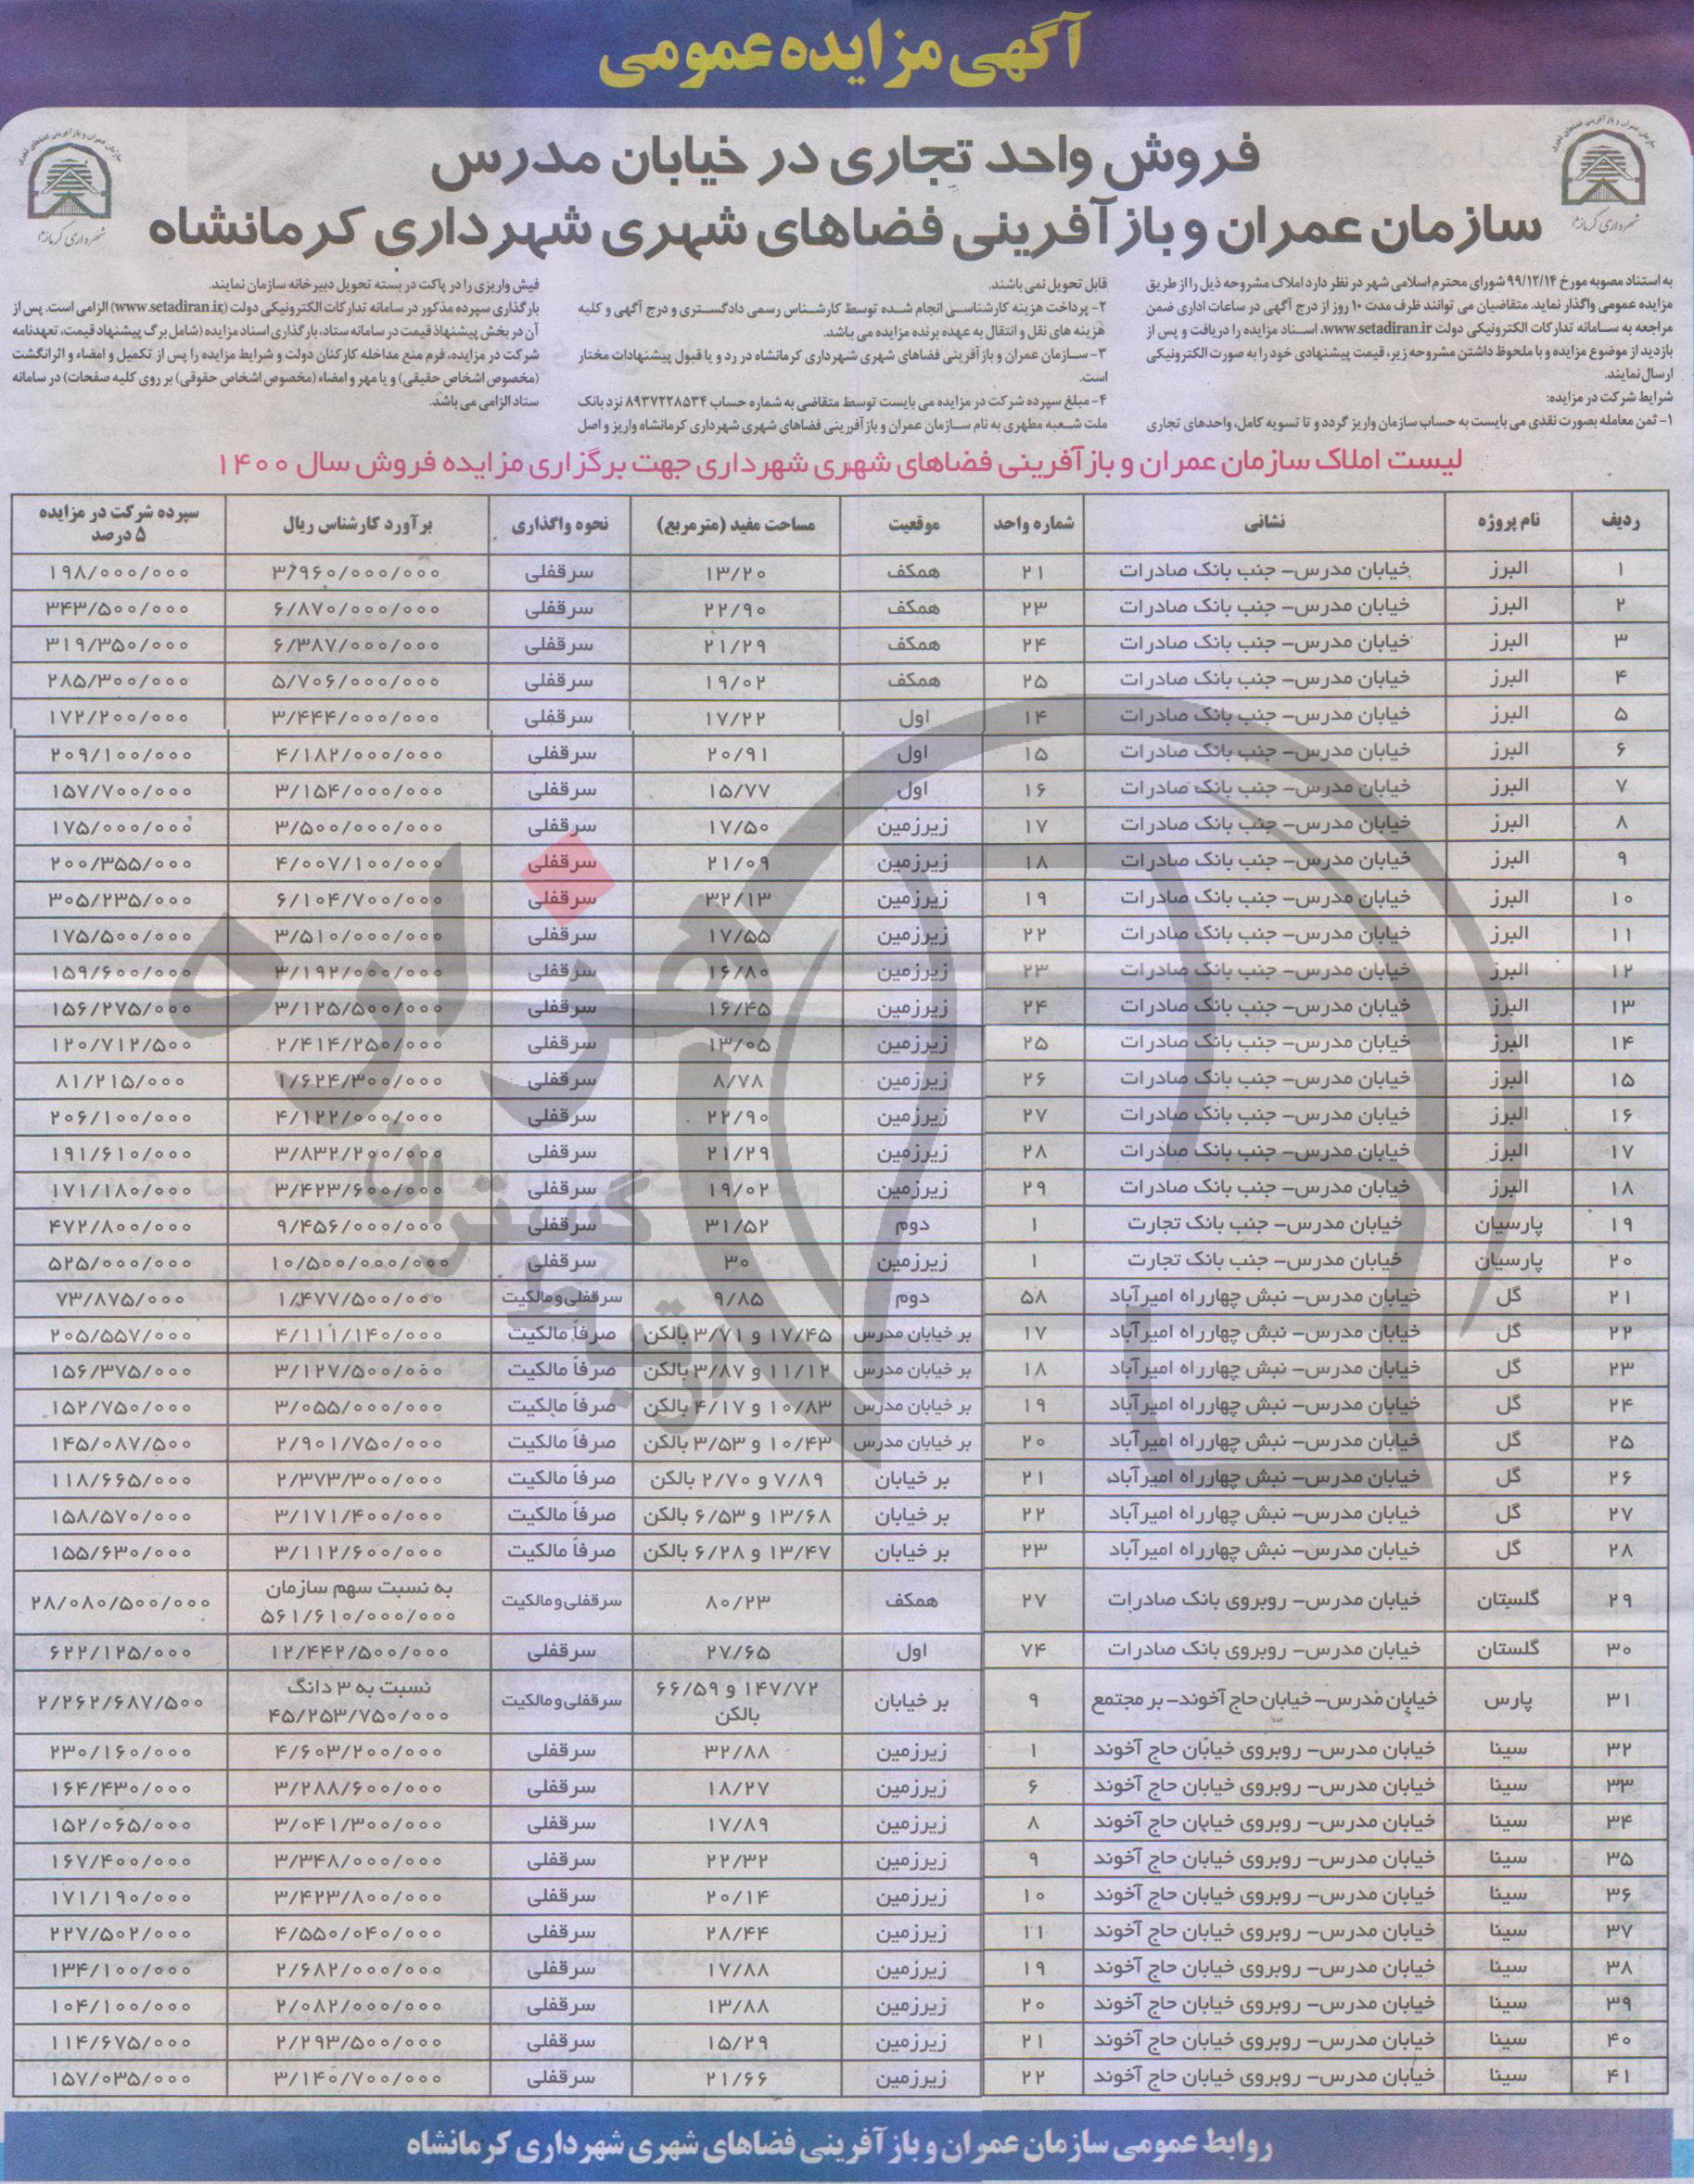 آگهی مزایده عمومی
فروش واحد تجاری در خیابان مدرس
سازمان عمران و بازآفرینی فضاهای شهری شهرداری کرمانشاه
سازمان عمران و بازآفرینی فضاهای شهری
شهرداری کرمانشاه
سازمان عمران و بازآفرینی فضاهای شهری
شهرداری کرمانشاه
به استناد مصوبه مورخ ۹۹/۱۲/۱۴ شورای محترم اسلامی شهر در نظر دارد املاک مشروحه ذیل را از طریق
مزایده عمومی واگذار نماید. متقاضیان می توانند ظرف مدت ۱۰ روز از درج آگهی در ساعات اداری ضمن
مراجعه به سامانه تدارکات الکترونیکی دولت www.setadiran.ir، اسناد مزایده را دریافت و پس از
بازدید از موضوع مزایده و با ملحوظ داشتن مشروحه زیر، قیمت پیشنهادی خود را به صورت الکترونیکی
ارسال نمایند.
شرایط شرکت در مزایده:
۱- ثمن معامله بصورت نقدی می بایست به حساب سازمان واریز گردد و تا تسویه کامل، واحدهای تجاری
قابل تحویل نمی باشند.
۲- پرداخت هزینه کارشناسی انجام شده توسط کارشناس رسمی دادگستری و درج آگهی و کلیه
هزینه های نقل و انتقال به عهده برنده مزایده می باشد.
۳- سازمان عمران و بازآفرینی فضاهای شهری شهرداری کرمانشاه در رد و یا قبول پیشنهادات مختار
است.
۴- مبلغ سپرده شرکت در مزایده می بایست توسط متقاضی به شماره حساب ۸۹۳۷۲۲۸۵۳۴ نزد بانک
ملت شعبه مطهری به نام سازمان عمران و بازآفررینی فضاهای شهری شهرداری کرمانشاه واریز و اصل
فیش واریزی را در پاکت در بسته تحویل دبیرخانه سازمان نمایند.
بارگذاری سپرده مذکور در سامانه تدارکات الکترونیکی دولت (www.setadiran.ir) الزامی است. پس از
آن در بخش پیشنهاد قیمت در سامانه ستاد، بارگذاری اسناد مزایده (شامل برگ پیشنهاد قیمت، تعهدنامه
شرکت در مزایده، فرم منع مداخله کارکنان دولت و شرایط مزایده را پس از تکمیل و امضاء و اثرانگشت
(مخصوص اشخاص حقیقی) و یا مهر و امضاء (مخصوص اشخاص حقوقی) بر روی کلیه صفحات) در سامانه
ستاد الزامی می باشد.
لیست املاک سازمان عمران و بازآفرینی فضاهای شهری شهرداری جهت برگزاری مزایده فروش سال ۱۴۰۰
ردیف نام پروژه نشانی شماره واحد موقعیت مساحت مفید (مترمربع) نحوه واگذاری برآورد کارشناس ریال سپرده شرکت در مزایده ۵ درصد
۱ البرز خیابان مدرس- جنب بانک صادرات ۲۱ همکف ۱۳/۲۰ سرقفلی ۳/۹۶۰/۰۰۰/۰۰۰ ۱۹۸/۰۰۰/۰۰۰
۲ البرز خیابان مدرس- جنب بانک صادرات ۲۳ همکف ۲۲/۹۰ سرقفلی ۶/۸۷۰/۰۰۰/۰۰۰ ۳۴۳/۵۰۰/۰۰۰
۳ البرز خیابان مدرس- جنب بانک صادرات ۲۴ همکف ۲۱/۲۹ سرقفلی ۶/۳۸۷/۰۰۰/۰۰۰ ۳۱۹/۳۵۰/۰۰۰
۴ البرز خیابان مدرس- جنب بانک صادرات ۲۵ همکف ۱۹/۰۲ سرقفلی ۵/۷۰۶/۰۰۰/۰۰۰ ۲۸۵/۳۰۰/۰۰۰
۵ البرز خیابان مدرس- جنب بانک صادرات ۱۴ اول ۱۷/۲۲ سرقفلی ۳/۴۴۴/۰۰۰/۰۰۰ ۱۷۲/۲۰۰/۰۰۰
۶ البرز خیابان مدرس- جنب بانک صادرات ۱۵ اول ۲۰/۹۱ سرقفلی ۴/۱۸۲/۰۰۰/۰۰۰ ۲۰۹/۱۰۰/۰۰۰
۷ البرز خیابان مدرس- جنب بانک صادرات ۱۶ اول ۱۵/۷۷ سرقفلی ۳/۱۵۴/۰۰۰/۰۰۰ ۱۵۷/۷۰۰/۰۰۰
۸ البرز خیابان مدرس- جنب بانک صادرات ۱۷ زیرزمین ۱۷/۵۰ سرقفلی ۳/۵۰۰/۰۰۰/۰۰۰ ۱۷۵/۰۰۰/۰۰۰
۹ البرز خیابان مدرس- جنب بانک صادرات ۱۸ زیرزمین ۲۱/۰۹ سرقفلی ۴/۰۰۷/۱۰۰/۰۰۰ ۲۰۰/۳۵۵/۰۰۰
۱۰ البرز خیابان مدرس- جنب بانک صادرات ۱۹ زیرزمین ۳۲/۱۳ سرقفلی ۶/۱۰۴/۷۰۰/۰۰۰ ۳۰۵/۲۳۵/۰۰۰
۱۱ البرز خیابان مدرس- جنب بانک صادرات ۲۲ زیرزمین ۱۷/۵۵ سرقفلی ۳/۵۱۰/۰۰۰/۰۰۰ ۱۷۵/۵۰۰/۰۰۰
۱۲ البرز خیابان مدرس- جنب بانک صادرات ۲۳ زیرزمین ۱۶/۸۰ سرقفلی ۳/۱۹۲/۰۰۰/۰۰۰ ۱۵۹/۶۰۰/۰۰۰
۱۳ البرز خیابان مدرس- جنب بانک صادرات ۲۴ زیرزمین ۱۶/۴۵ سرقفلی ۳/۱۲۵/۵۰۰/۰۰۰ ۱۵۶/۲۷۵/۰۰۰
۱۴ البرز خیابان مدرس- جنب بانک صادرات ۲۵ زیرزمین ۱۳/۰۵ سرقفلی ۲/۴۱۴/۲۵۰/۰۰۰ ۱۲۰/۷۱۲/۵۰۰
۱۵ البرز خیابان مدرس- جنب بانک صادرات ۲۶ زیرزمین ۸/۷۸ سرقفلی ۱/۶۲۴/۳۰۰/۰۰۰ ۸۱/۲۱۵/۰۰۰
۱۶ البرز خیابان مدرس- جنب بانک صادرات ۲۷ زیرزمین ۲۲/۹۰ سرقفلی ۴/۱۲۲/۰۰۰/۰۰۰ ۲۰۶/۱۰۰/۰۰۰
۱۷ البرز خیابان مدرس- جنب بانک صادرات ۲۸ زیرزمین ۲۱/۲۹ سرقفلی ۳/۸۳۲/۲۰۰/۰۰۰ ۱۹۱/۶۱۰/۰۰۰
۱۸ البرز خیابان مدرس- جنب بانک صادرات ۲۹ زیرزمین ۱۹/۰۲ سرقفلی ۳/۴۲۳/۶۰۰/۰۰۰ ۱۷۱/۱۸۰/۰۰۰
۱۹ پارسیان خیابان مدرس- جنب بانک تجارت ۱ دوم ۳۱/۵۲ سرقفلی ۹/۴۵۶/۰۰۰/۰۰۰ ۴۷۲/۸۰۰/۰۰۰
۲۰ پارسیان خیابان مدرس- جنب بانک تجارت ۱ زیرزمین ۳۰ سرقفلی ۱۰/۵۰۰/۰۰۰/۰۰۰ ۵۲۵/۰۰۰/۰۰۰
۲۱ گل خیابان مدرس- نبش چهارراه امیرآباد ۵۸ دوم ۹/۸۵ سرقفلی و مالکیت ۱/۴۷۷/۵۰۰/۰۰۰ ۷۳/۸۷۵/۰۰۰
۲۲ گل خیابان مدرس- نبش چهارراه امیرآباد ۱۷ بر خیابان مدرس ۱۷/۴۵ و ۳/۷۱ بالکن صرفاً مالکیت ۴/۱۱۱/۱۴۰/۰۰۰ ۲۰۵/۵۵۷/۰۰۰
۲۳ گل خیابان مدرس- نبش چهارراه امیرآباد ۱۸ بر خیابان مدرس ۱۱/۱۲ و ۳/۸۷ بالکن صرفاً مالکیت ۳/۱۲۷/۵۰۰/۰۰۰ ۱۵۶/۳۷۵/۰۰۰
۲۴ گل خیابان مدرس- نبش چهارراه امیرآباد ۱۹ بر خیابان مدرس ۱۰/۸۳ و ۴/۱۷ بالکن صرفاً مالکیت ۳/۰۵۵/۰۰۰/۰۰۰ ۱۵۲/۷۵۰/۰۰۰
۲۵ گل خیابان مدرس- نبش چهارراه امیرآباد ۲۰ بر خیابان مدرس ۱۰/۴۳ و ۳/۵۳ بالکن صرفاً مالکیت ۲/۹۰۱/۷۵۰/۰۰۰ ۱۴۵/۰۸۷/۵۰۰
۲۶ گل خیابان مدرس- نبش چهارراه امیرآباد ۲۱ بر خیابان ۷/۸۹ و ۲/۷۰ بالکن صرفاً مالکیت ۲/۳۷۳/۳۰۰/۰۰۰ ۱۱۸/۶۶۵/۰۰۰
۲۷ گل خیابان مدرس- نبش چهارراه امیرآباد ۲۲ بر خیابان ۱۳/۶۸ و ۶/۵۳ بالکن صرفاً مالکیت ۳/۱۷۱/۴۰۰/۰۰۰ ۱۵۸/۵۷۰/۰۰۰
۲۸ گل خیابان مدرس- نبش چهارراه امیرآباد ۲۳ بر خیابان ۱۳/۴۷ و ۶/۲۸ بالکن صرفاً مالکیت ۳/۱۱۲/۶۰۰/۰۰۰ ۱۵۵/۶۳۰/۰۰۰
۲۹ گلستان خیابان مدرس- روبروی بانک صادرات ۲۷ همکف ۸۰/۲۳ سرقفلی و مالکیت به نسبت سهم سازمان ۵۶۱/۶۱۰/۰۰۰/۰۰۰ ۲۸/۰۸۰/۵۰۰/۰۰۰
۳۰ گلستان خیابان مدرس- روبروی بانک صادرات ۷۴ اول ۲۷/۶۵ سرقفلی ۱۲/۴۴۲/۵۰۰/۰۰۰ ۶۲۲/۱۲۵/۰۰۰
۳۱ پارس خیابان مدرس- خیابان حاج آخوند- بر مجتمع ۹ بر خیابان ۱۴۷/۷۲ و ۶۶/۵۹ بالکن سرقفلی و مالکیت نسبت به ۳ دانگ ۴۵/۲۵۳/۷۵۰/۰۰۰ ۲/۲۶۲/۶۸۷/۵۰۰
۳۲ سینا خیابان مدرس- روبروی خیابان حاج آخوند ۱ زیرزمین ۳۲/۸۸ سرقفلی ۴/۶۰۳/۲۰۰/۰۰۰ ۲۳۰/۱۶۰/۰۰۰
۳۳ سینا خیابان مدرس- روبروی خیابان حاج آخوند ۶ زیرزمین ۱۸/۲۷ سرقفلی ۳/۲۸۸/۶۰۰/۰۰۰ ۱۶۴/۴۳۰/۰۰۰
۳۴ سینا خیابان مدرس- روبروی خیابان حاج آخوند ۸ زیرزمین ۱۷/۸۹ سرقفلی ۳/۰۴۱/۳۰۰/۰۰۰ ۱۵۲/۰۶۵/۰۰۰
۳۵ سینا خیابان مدرس- روبروی خیابان حاج آخوند ۹ زیرزمین ۲۲/۳۲ سرقفلی ۳/۳۴۸/۰۰۰/۰۰۰ ۱۶۷/۴۰۰/۰۰۰
۳۶ سینا خیابان مدرس- روبروی خیابان حاج آخوند ۱۰ زیرزمین ۲۰/۱۴ سرقفلی ۳/۴۲۳/۸۰۰/۰۰۰ ۱۷۱/۱۹۰/۰۰۰
۳۷ سینا خیابان مدرس- روبروی خیابان حاج آخوند ۱۱ زیرزمین ۲۸/۴۴ سرقفلی ۴/۵۵۰/۰۴۰/۰۰۰ ۲۲۷/۵۰۲/۰۰۰
۳۸ سینا خیابان مدرس- روبروی خیابان حاج آخوند ۱۹ زیرزمین ۱۷/۸۸ سرقفلی ۲/۶۸۲/۰۰۰/۰۰۰ ۱۳۴/۱۰۰/۰۰۰
۳۹ سینا خیابان مدرس- روبروی خیابان حاج آخوند ۲۰ زیرزمین ۱۳/۸۸ سرقفلی ۲/۰۸۲/۰۰۰/۰۰۰ ۱۰۴/۱۰۰/۰۰۰
۴۰ سینا خیابان مدرس- روبروی خیابان حاج آخوند ۲۱ زیرزمین ۱۵/۲۹ سرقفلی ۲/۲۹۳/۵۰۰/۰۰۰ ۱۱۴/۶۷۵/۰۰۰
۴۱ سینا خیابان مدرس- روبروی خیابان حاج آخوند ۲۲ زیرزمین ۲۱/۶۶ سرقفلی ۳/۱۴۰/۷۰۰/۰۰۰ ۱۵۷/۰۳۵/۰۰۰
هزاره
گستران
ارتباط
روابط عمومی سازمان عمران و بازآفرینی فضاهای شهری شهرداری کرمانشاه